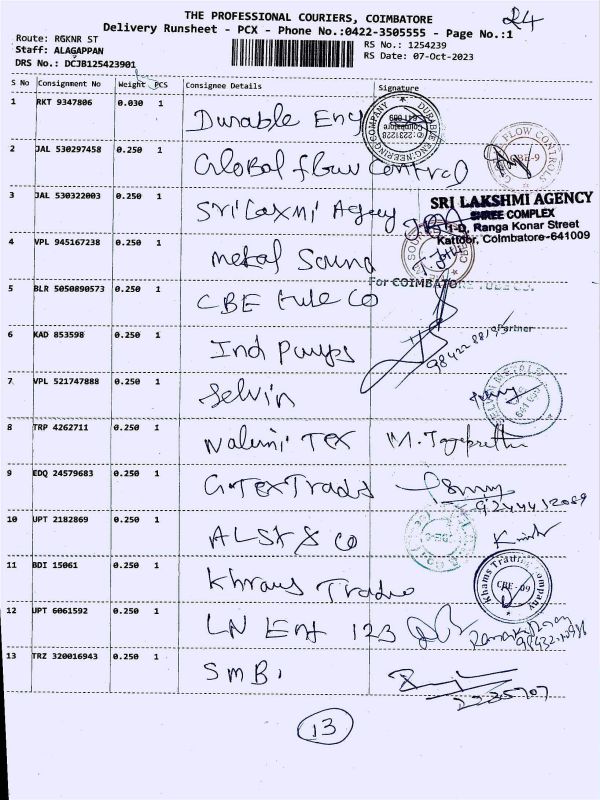 THE PROFESSIONAL COURIERS, COIMBATORE
24
Delivery Runsheet - PCX - Phone No.:0422-3505555 - Page No.:1
Route: RGKNR ST
RS No.: 1254239
Staff: ALAGAPPAN
RS Date: 07-Oct-2023
DRS No.: DCJB125423901
S No Consignment No Weight PCS Consignee Details Signature
1 RKT 9347806 0.030 1 Durable Eng
DURABLE ENGINEERING COMPANY
2 JAL 530297458 0.250 1 Global flow control
FLOW CONTROLS
CBE-9
3 JAL 530322003 0.250 1 Sri Laxmi Agency
SRI LAKSHMI AGENCY
SHREE COMPLEX
Ranga Konar Street
Kattoor, Coimbatore-641009
4 VPL 945167238 0.250 1 Metal Sound
5 BLR 5050890573 0.250 1 CBE tube Co
For COIMBATORE TUBE CO.
Partner
6 KAD 853598 0.250 1 Ind Pumps
7 VPL 521747888 0.250 1 Selvin
SELVIN METALS
8 TRP 4262711 0.250 1 Nalini Tex
9 EDQ 24579683 0.250 1 G-Tex Trads
10 UPT 2182869 0.250 1 ALSK & Co
11 BDI 15061 0.250 1 Khrams Trading
Khams Trading Company
CBE-09
12 UPT 6061592 0.250 1 LN Ent 123
13 TRZ 320016943 0.250 1 SMBi
2235707
13